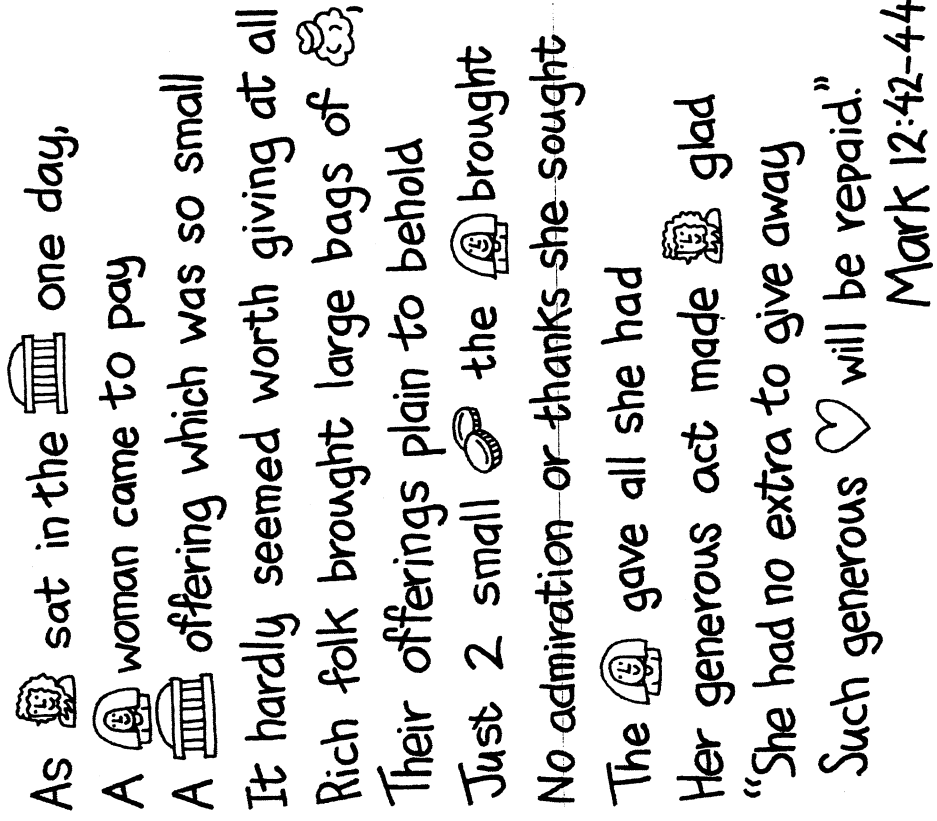 As sat in the one day,
A woman came to pay
A offering which was so small
It hardly seemed worth giving at all
Rich folk brought large bags of ,
Their offerings plain to behold
Just 2 small the brought
No admiration or thanks she sought
The gave all she had
Her generous act made glad
“She had no extra to give away
Such generous will be repaid.”
Mark 12:42-44